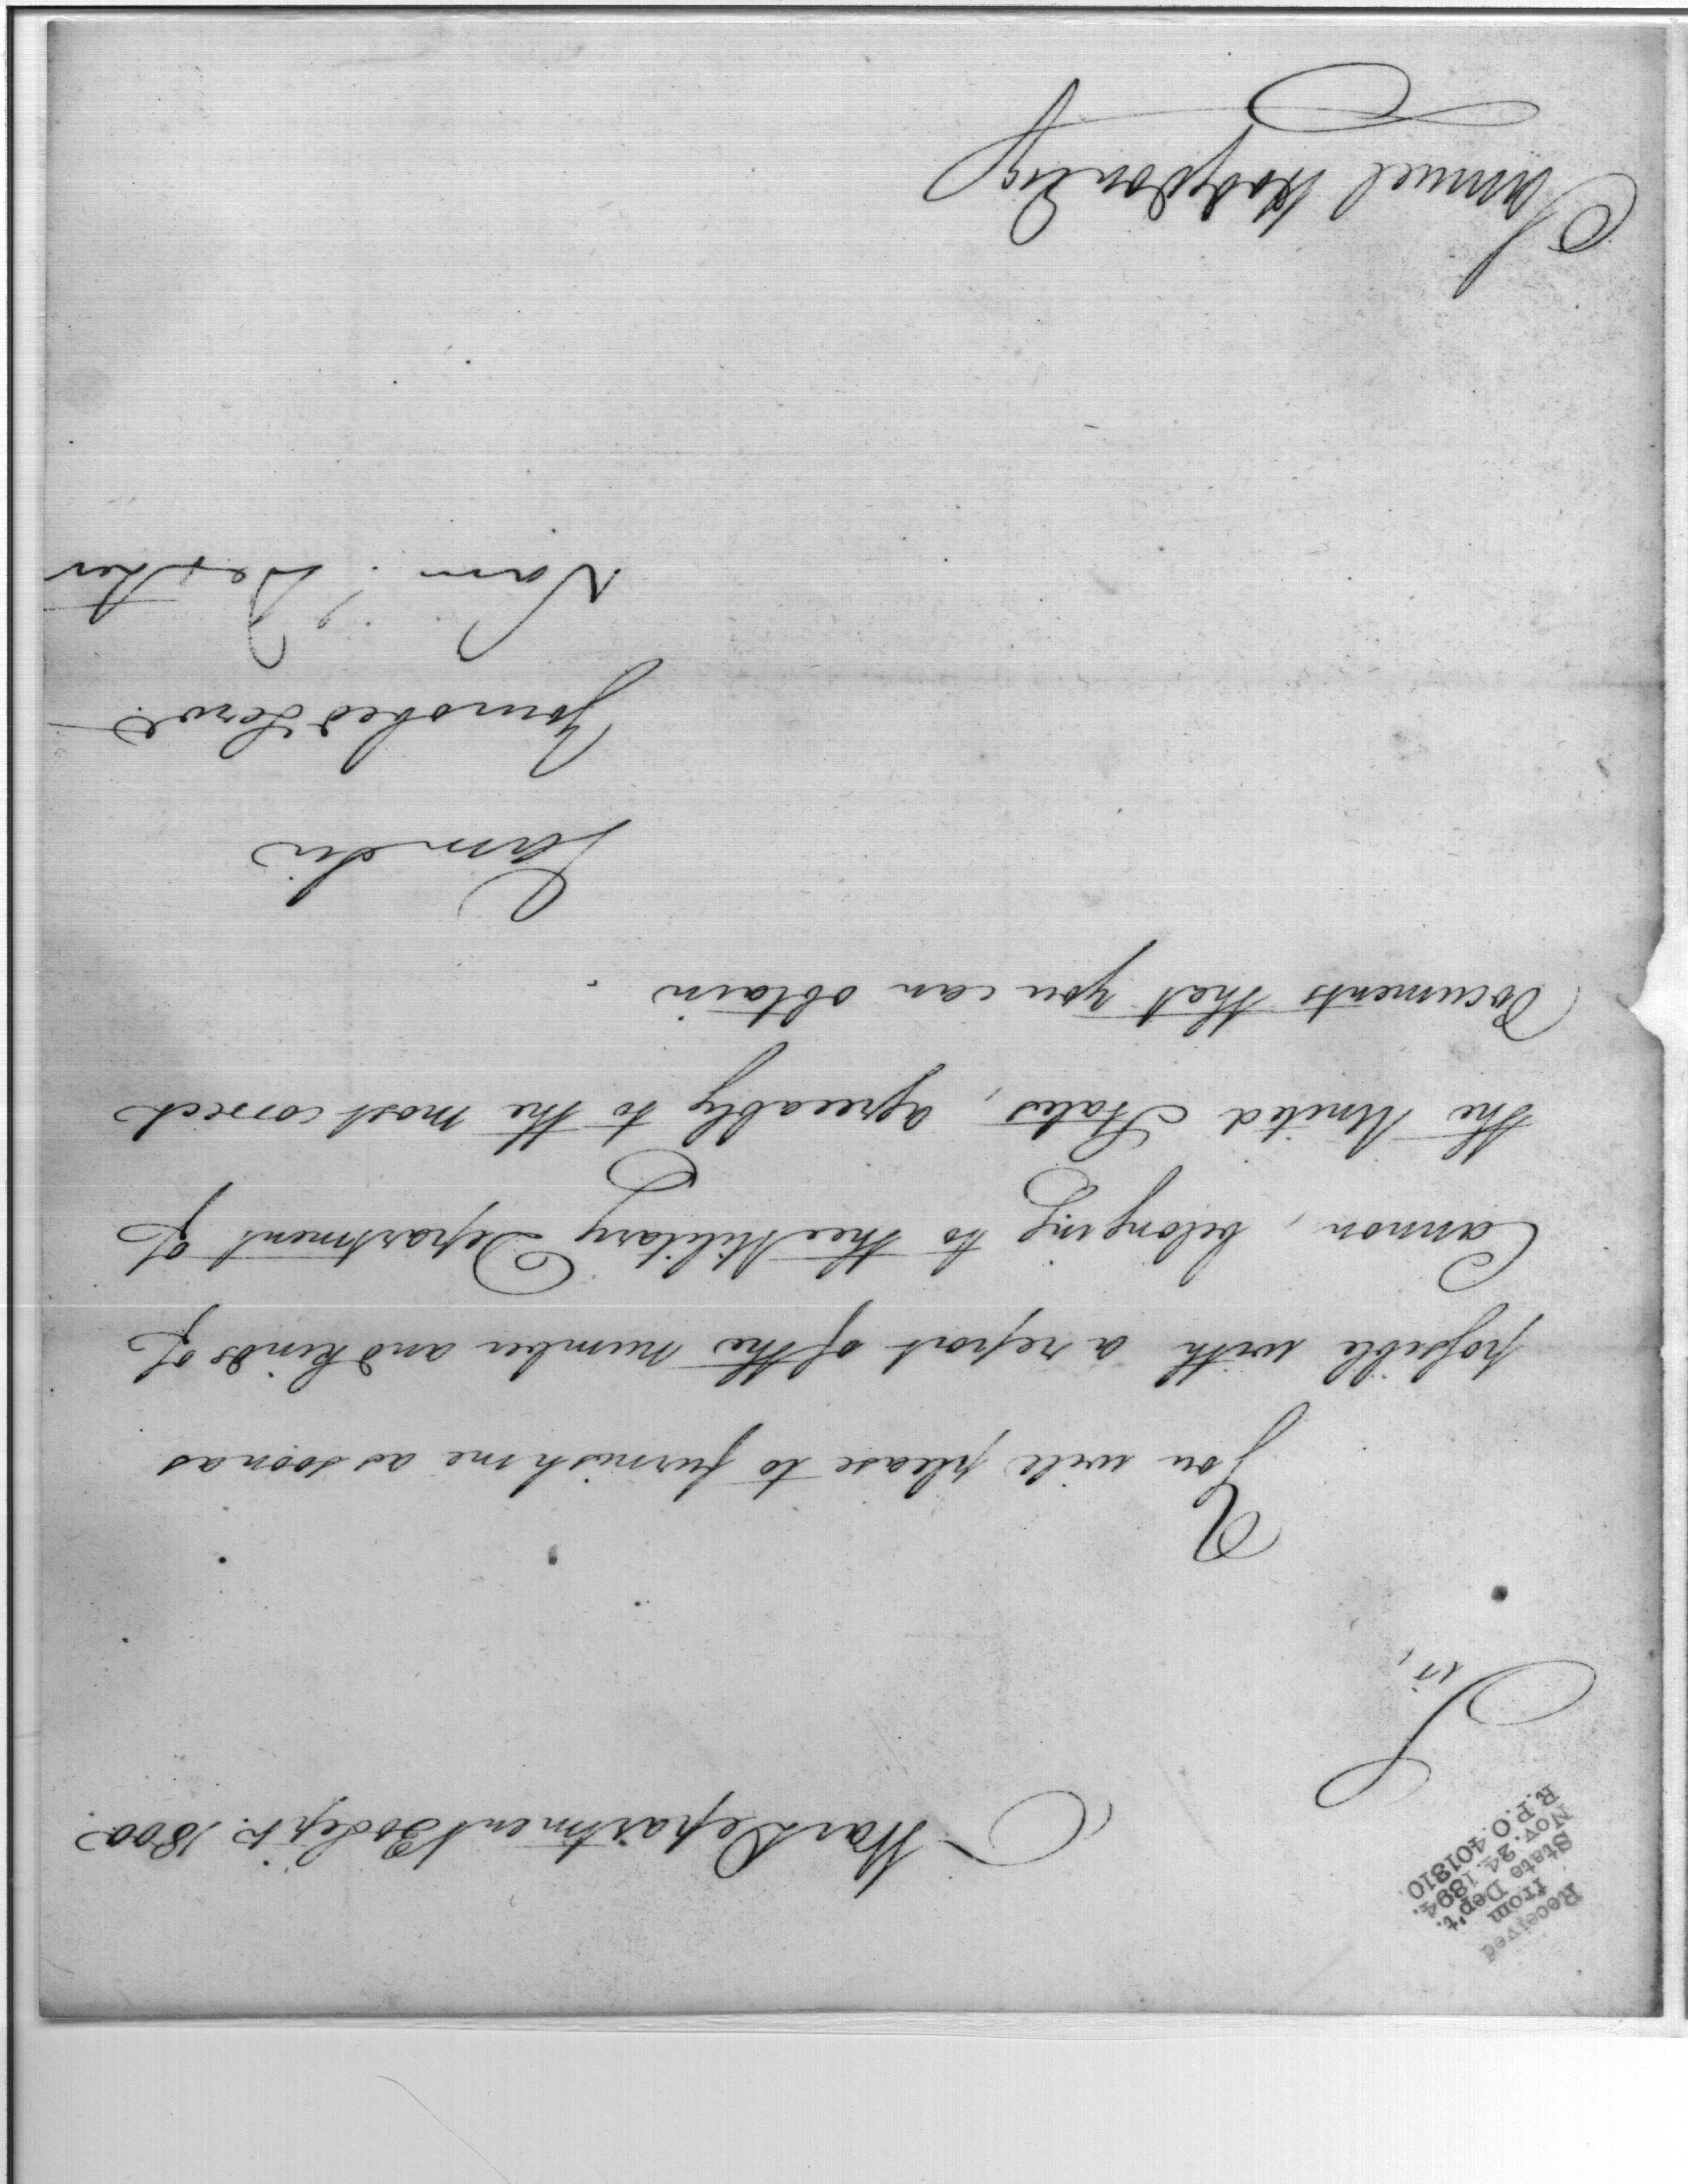 Received
from
State Dep't.
Nov. 24. 1894.
R.P.O. 401810.
War Department 30 Sept. 1800.
Sir,
You will please to furnish me as soon as
possible with a report of the number and kinds of
Cannon, belonging to the Military Department of
the United States, agreeably to the most correct
Documents that you can obtain.
I am Sir
Your obed Servt
Sam: Dexter
Samuel Hodgdon Esq